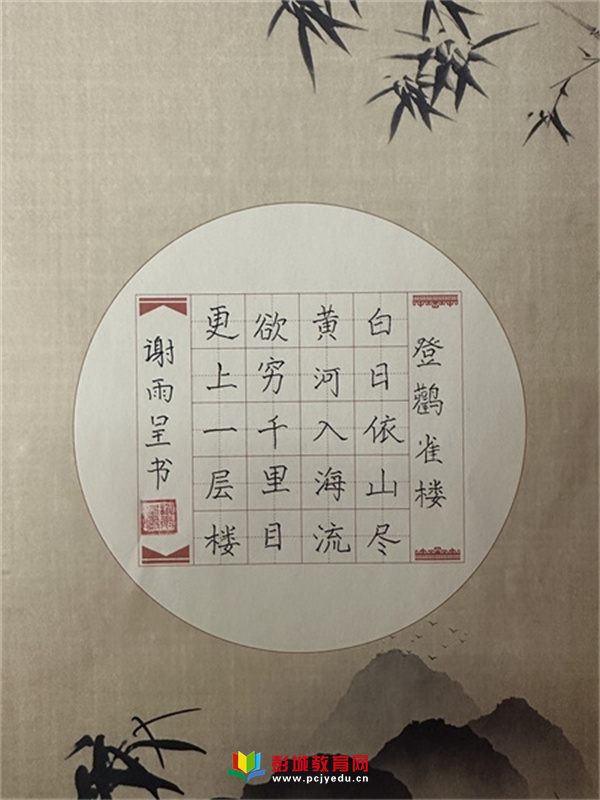 登鸛雀楼
白日依山尽
黄河入海流
欲穷千里目
更上一层楼
谢雨呈书
彭城教育网
www.pcjyedu.cn